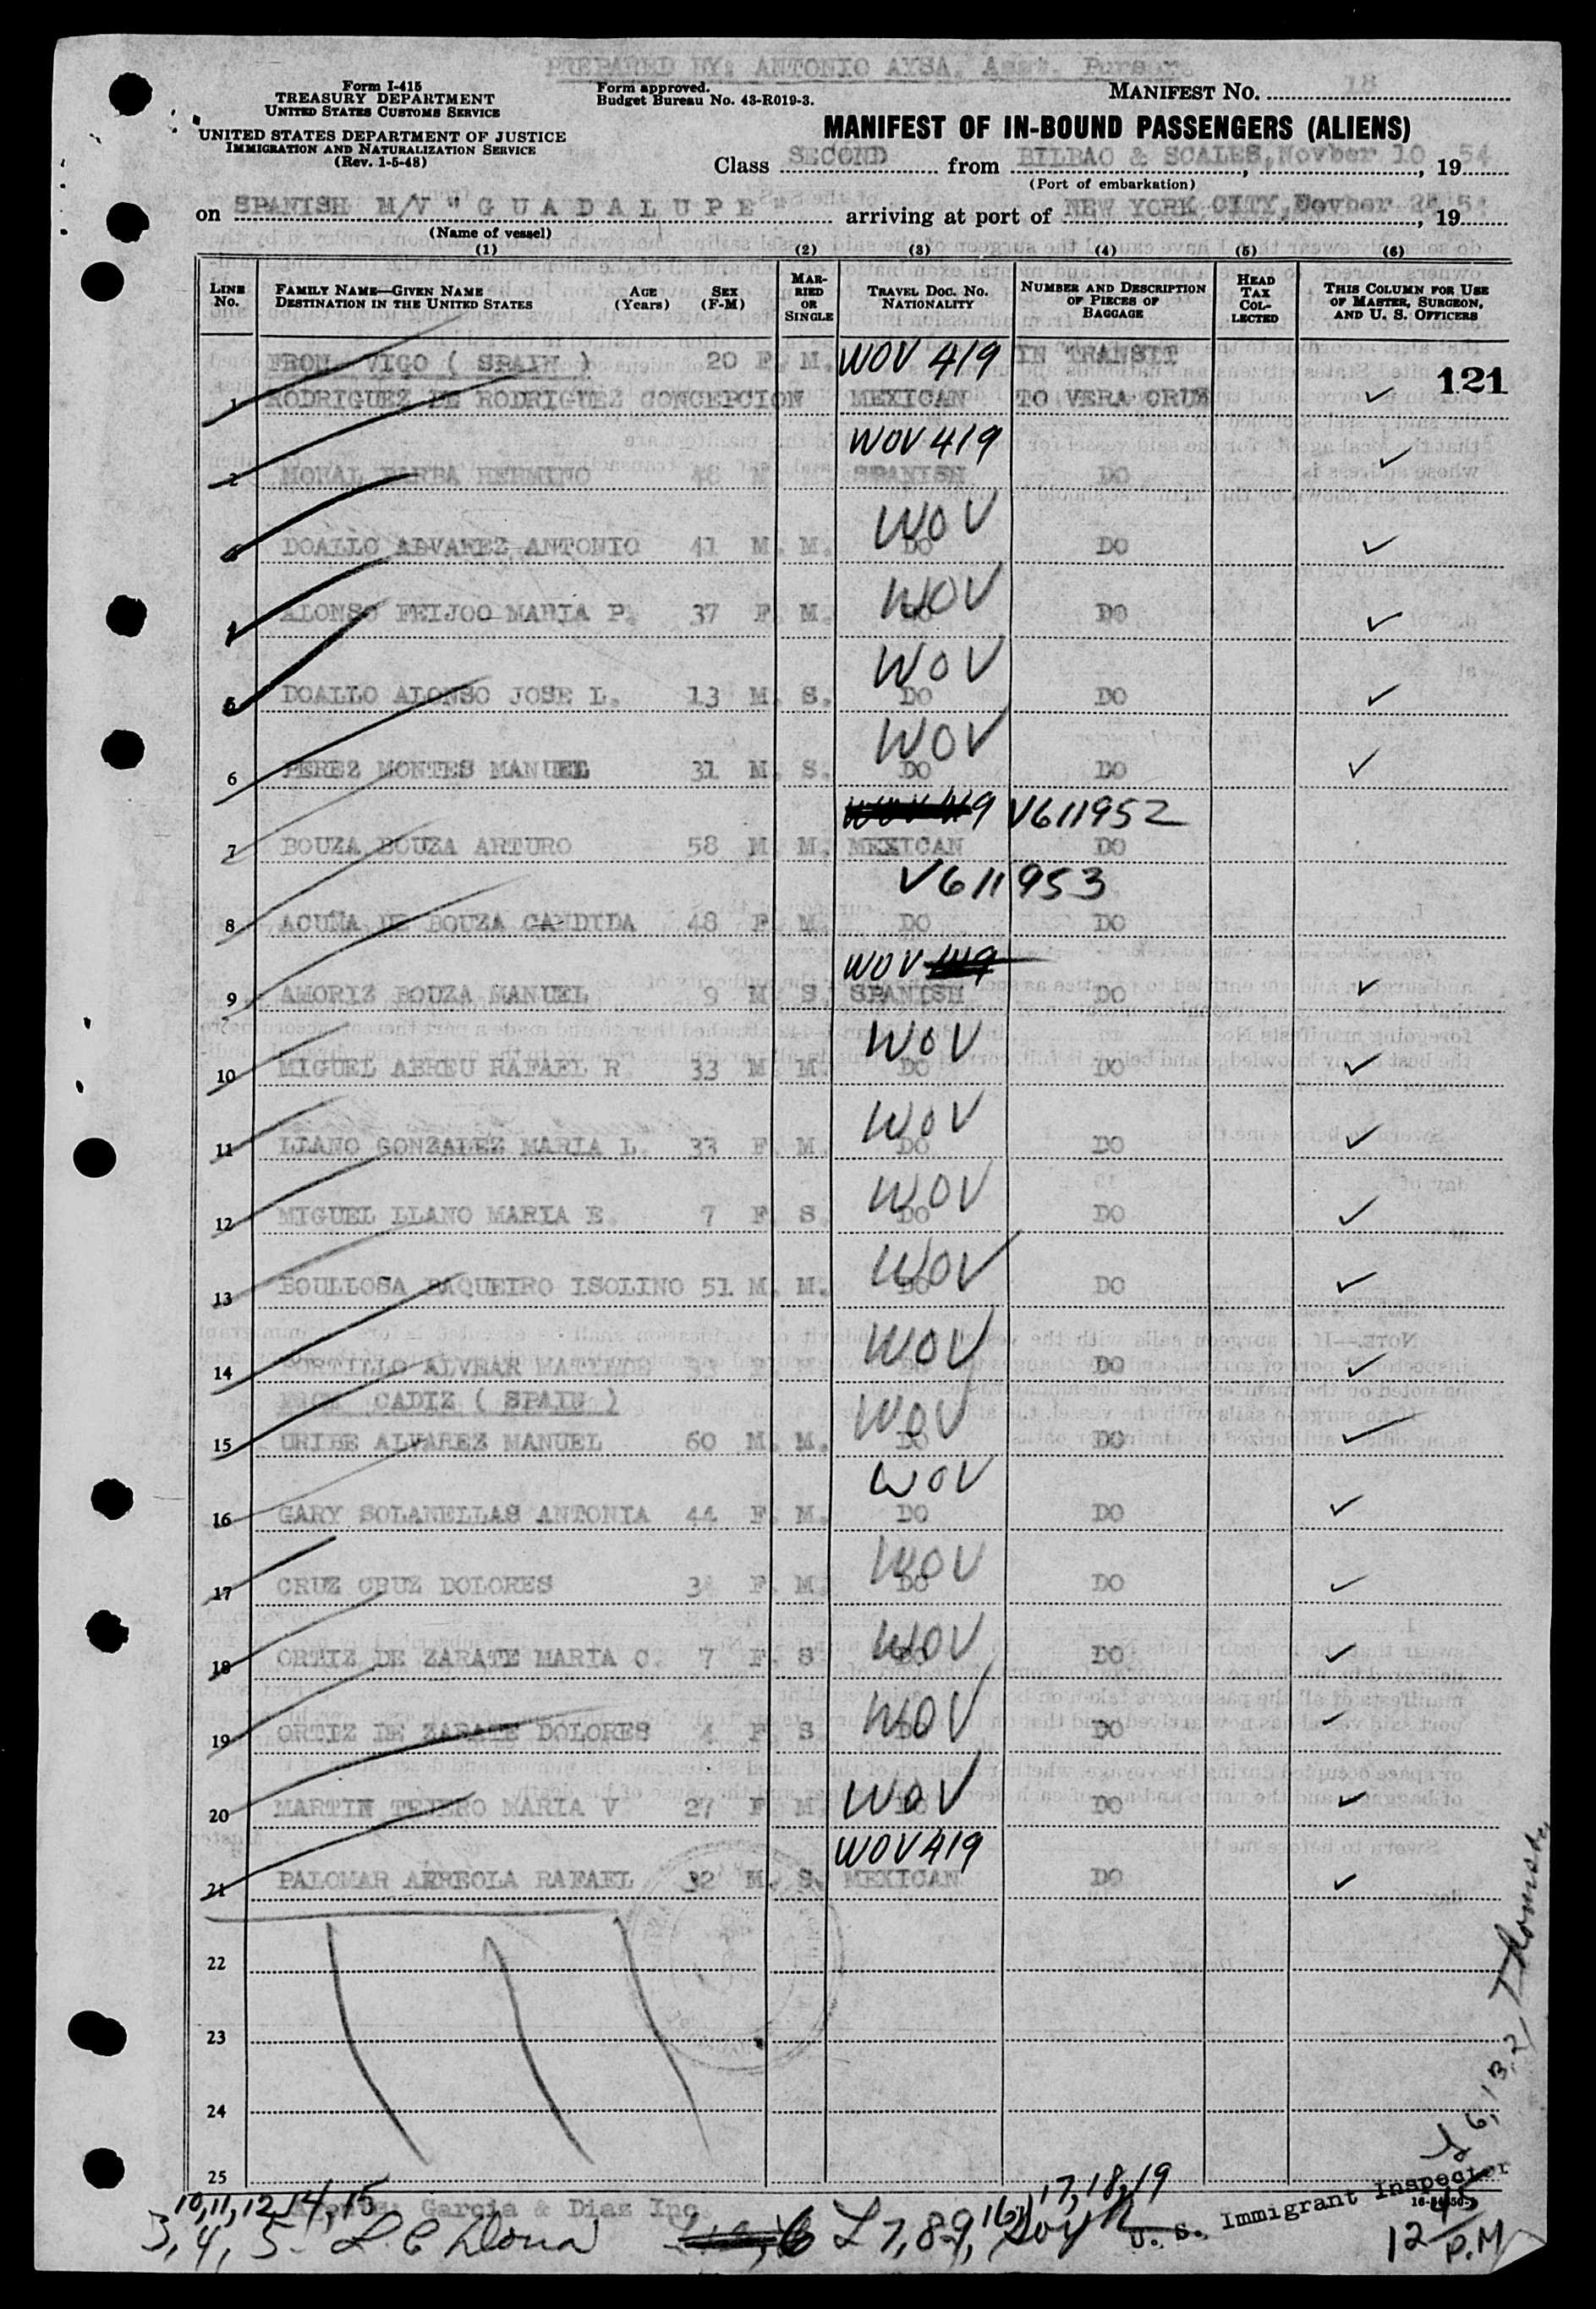 PREPARED BY: ANTONIO AYSA, Asst. Purser.
Form I-415
TREASURY DEPARTMENT
UNITED STATES CUSTOMS SERVICE
Form approved.
Budget Bureau No. 43-R019-3.
MANIFEST NO. 18
UNITED STATES DEPARTMENT OF JUSTICE
IMMIGRATION AND NATURALIZATION SERVICE
(Rev. 1-5-48)
MANIFEST OF IN-BOUND PASSENGERS (ALIENS)
Class SECOND from BILBAO & SCALES, Novber 10, 19 54
(Port of embarkation)
on SPANISH M/V "GUADALUPE" arriving at port of NEW YORK CITY, 19 54
(Name of vessel)
(1) (2) (3) (4) (5) (6)
LINE No. FAMILY NAME—GIVEN NAME DESTINATION IN THE UNITED STATES AGE (Years) SEX (F-M) MARRIED OR SINGLE TRAVEL DOC. NO. NATIONALITY NUMBER AND DESCRIPTION OF PIECES OF BAGGAGE HEAD TAX COLLECTED THIS COLUMN FOR USE OF MASTER, SURGEON, AND U. S. OFFICERS
FROM VIGO ( SPAIN ) 20 F. M. WOV 419 IN TRANSIT
121
1 RODRIGUEZ DE RODRIGUEZ CONCEPCION MEXICAN TO VERA CRUZ ✓
WOV 419
2 BARBA HERMINO SPANISH DO ✓
WOV
3 DOALLO ALVAREZ ANTONIO 41 M. M. DO DO ✓
WOV
4 ALONSO FEIJOO MARIA P. 37 F. M. DO DO ✓
WOV
5 DOALLO ALONSO JOSE L. 13 M. S. DO DO ✓
WOV
6 PEREZ MONTES MANUEL 31 M. S. DO DO ✓
V611952
7 BOUZA BOUZA ARTURO 58 M M. MEXICAN DO
V611953
8 ACUÑA DE BOUZA CANDIDA 48 F. M. DO DO
WOV 419
9 AMORIZ BOUZA MANUEL 9 M S. SPANISH DO ✓
WOV
10 MIGUEL ABREU RAFAEL R 33 M M. DO DO ✓
WOV
11 LLANO GONZALEZ MARIA L. 33 F. M. DO DO ✓
WOV
12 MIGUEL LLANO MARIA E. 7 F. S. DO DO ✓
WOV
13 BOULLOSA BAQUEIRO ISOLINO 51 M. M. DO DO ✓
WOV
14 PORTILLO ALVEAR MATILDE 33 F M. DO DO ✓
FROM CADIZ ( SPAIN )
WOV
15 URIBE ALVAREZ MANUEL 60 M. M. DO DO ✓
WOV
16 GARY SOLANELLAS ANTONIA 44 F. M. DO DO ✓
WOV
17 CRUZ CRUZ DOLORES F. M. DO DO ✓
WOV
18 ORTIZ DE ZARATE MARIA C. 7 F. S DO DO ✓
WOV
19 ORTIZ DE ZARATE DOLORES 4 F S DO DO ✓
WOV
20 MARTIN TEJERO MARIA V. 27 F M. DO DO ✓
WOV 419
21 PALOMAR ARREOLA RAFAEL 32 M. S. MEXICAN DO ✓
22
23
24
25
10, 11, 12, 14, 15
Agents: Garcia & Diaz Inc.
17, 18, 19
3, 4, 5
6 L 7, 8, 9, 16
U. S. Immigrant Inspector
12 45 P.M